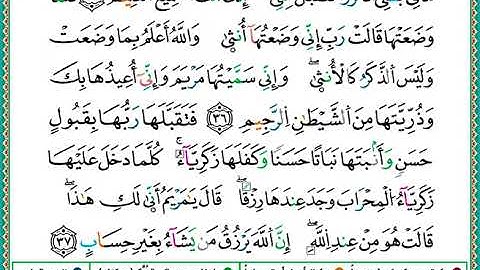 وَضَعَتْهَا قَالَتْ رَبِّ إِنِّي وَضَعْتُهَآ أُنثَىٰ وَٱللَّهُ أَعْلَمُ بِمَا وَضَعَتْ
وَلَيْسَ ٱلذَّكَرُ كَٱلْأُنثَىٰ ۖ وَإِنِّي سَمَّيْتُهَا مَرْيَمَ وَإِنِّيٓ أُعِيذُهَا بِكَ
وَذُرِّيَّتَهَا مِنَ ٱلشَّيْطَٰنِ ٱلرَّجِيمِ ٣٦ فَتَقَبَّلَهَا رَبُّهَا بِقَبُولٍ
حَسَنٍ وَأَنۢبَتَهَا نَبَاتًا حَسَنًا وَكَفَّلَهَا زَكَرِيَّآءُ ۚ كُلَّمَا دَخَلَ عَلَيْهَا
زَكَرِيَّآءُ ٱلْمِحْرَابَ وَجَدَ عِندَهَا رِزْقًا ۖ قَالَ يَٰمَرْيَمُ أَنَّىٰ لَكِ هَٰذَا ۖ
قَالَتْ هُوَ مِنْ عِندِ ٱللَّهِ ۖ إِنَّ ٱللَّهَ يَرْزُقُ مَن يَشَآءُ بِغَيْرِ حِسَابٍ ٣٧